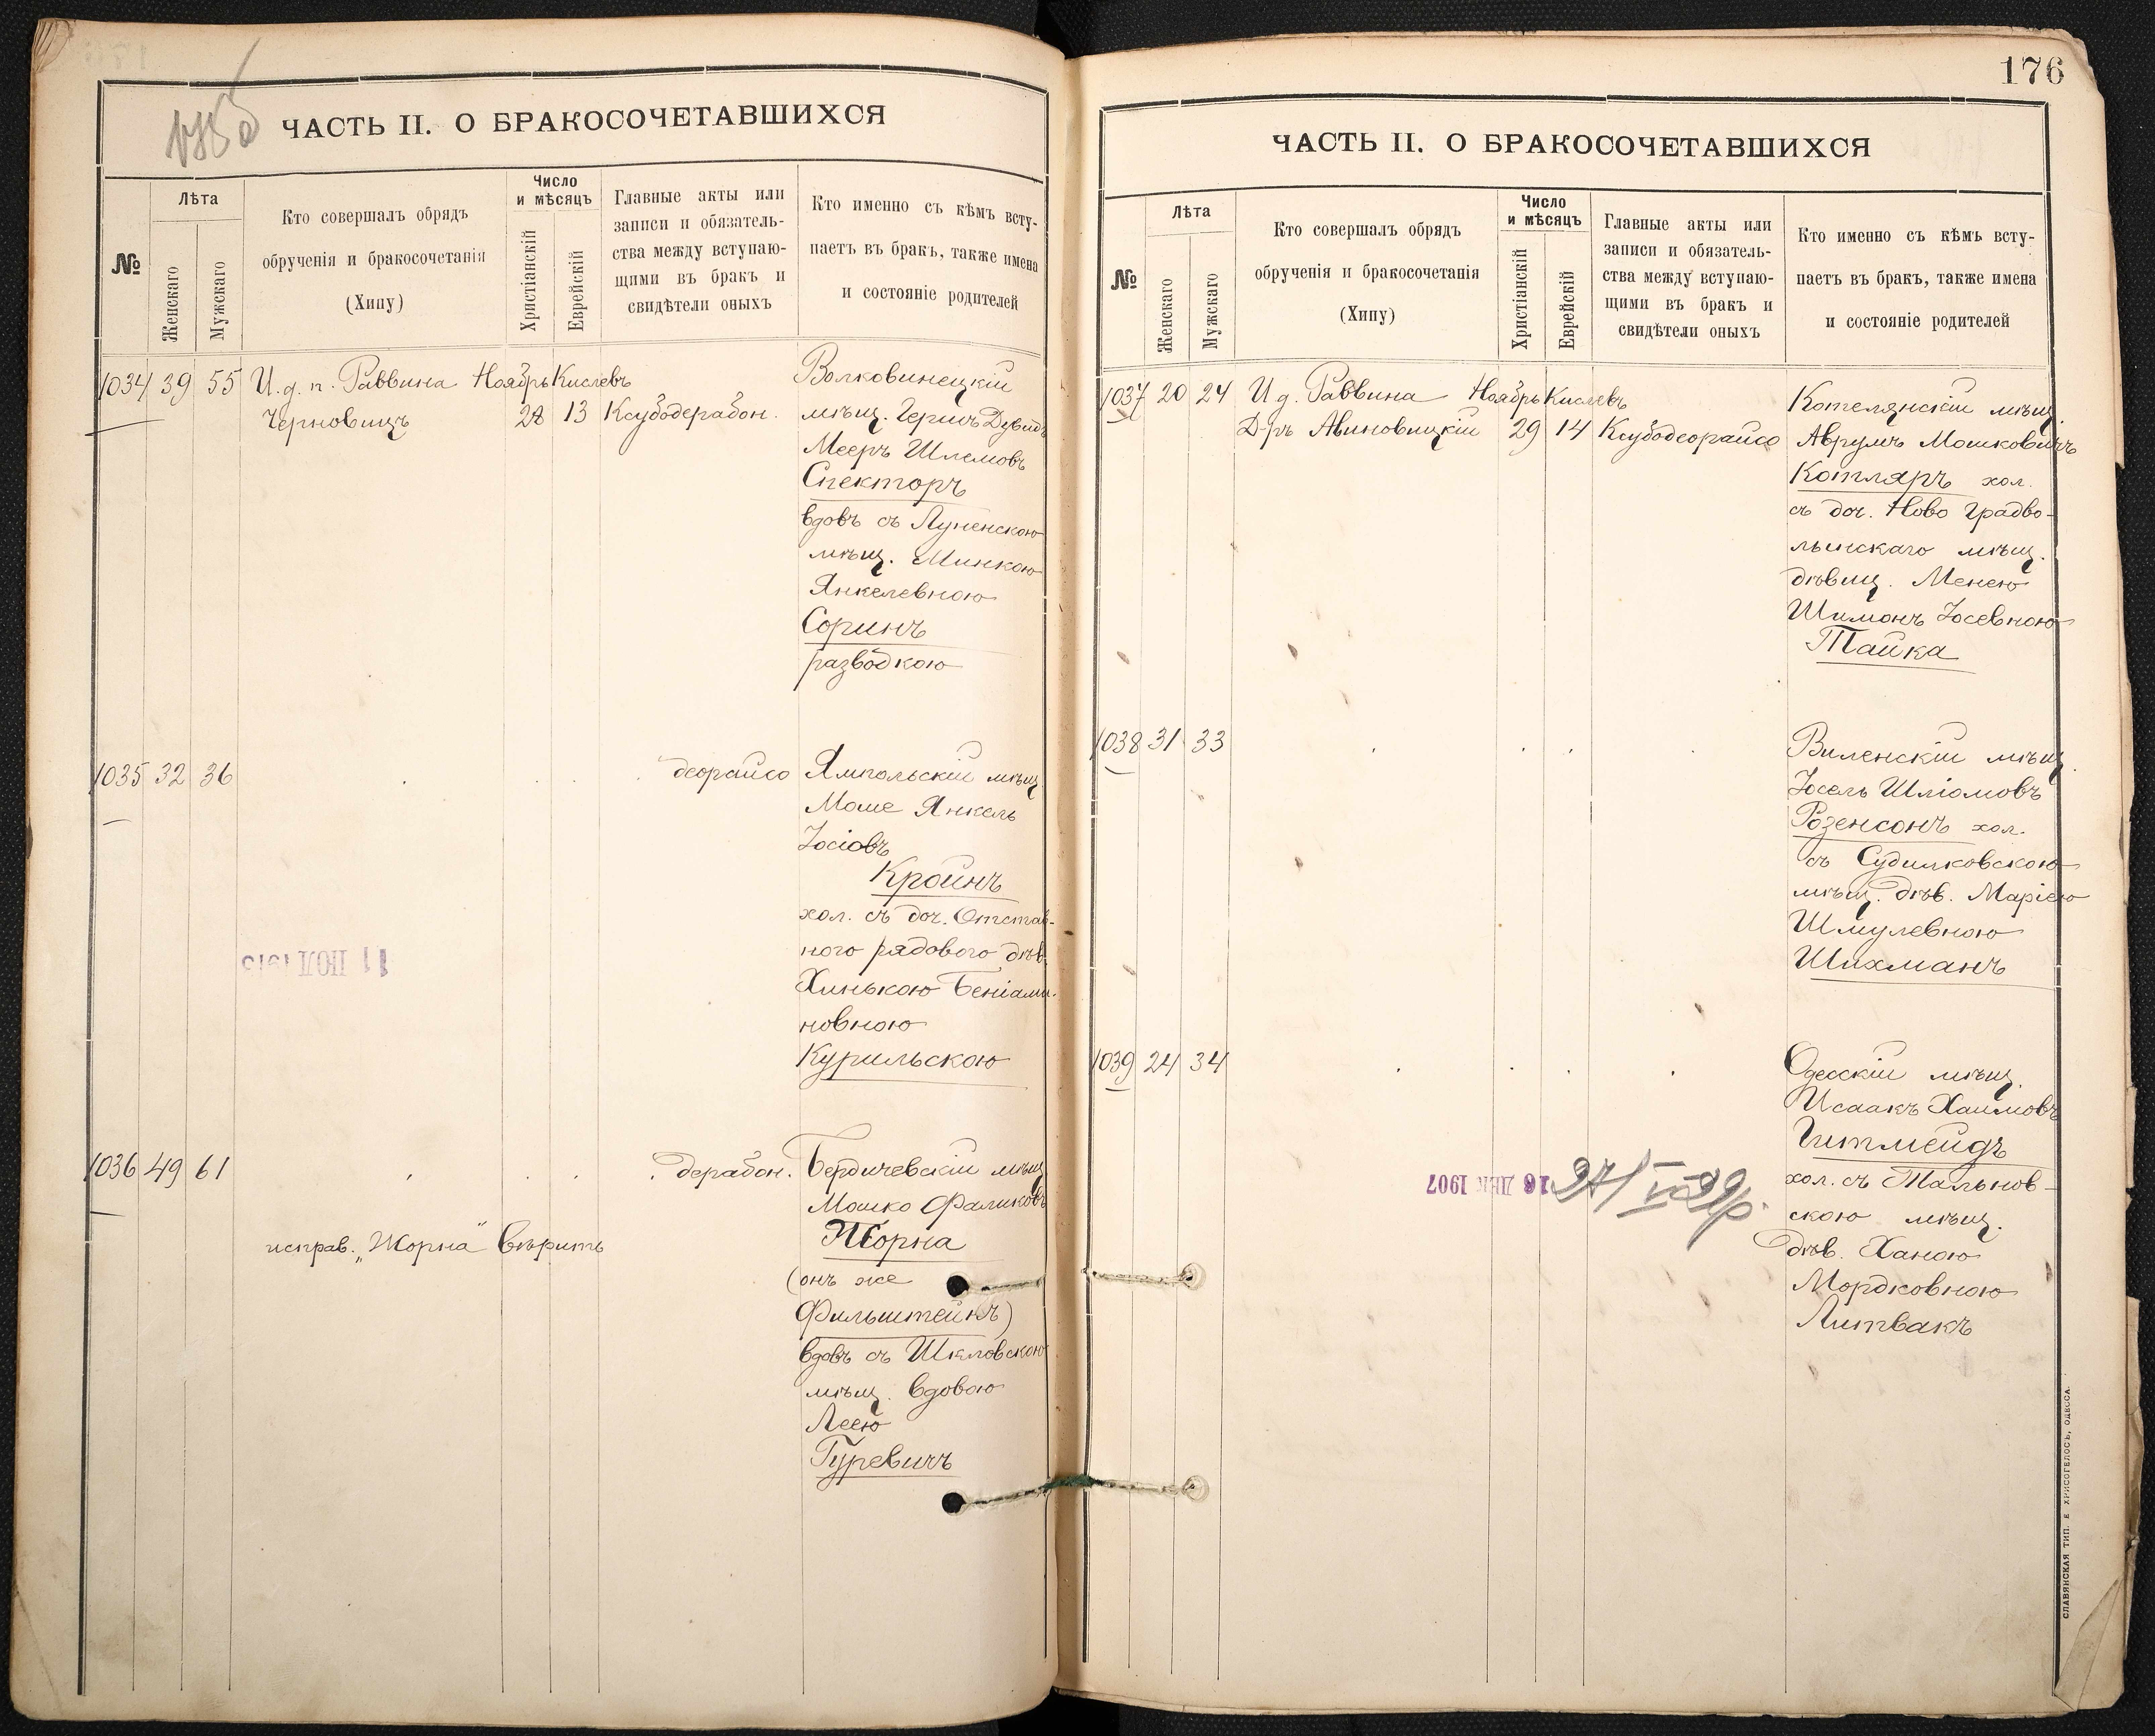 ЧАСТЬ II. О БРАКОСОЧЕТАВШИХСЯ
№
Лѣта
Женскаго
Мужскаго
Кто совершалъ обрядъ
обрученія и бракосочетанія
(Хипу)
Число
и мѣсяцъ
Христіанскій
Еврейскій
Главные акты или
записи и обязатель-
ства между вступаю-
щими въ бракъ и
свидѣтели оныхъ
Кто именно съ кѣмъ всту-
паетъ въ бракъ, также имена
и состояніе родителей
1034 39 55 И.д.п. Раввина Ноябрь Кислевъ
Черновицъ 28 13 Ксубодерабон.
Волковинецкій
мѣщ. Гершъ Дувидъ
Мееръ Шлемовъ
Спекторъ
вдовъ съ
мѣщ. Минкою
Янкелевною
Соринъ
разводкою
1035 32 36 деорайсо
Ямпольскій мѣщ.
Моше Янкель
Іосіовъ
Кройнъ
хол. съ доч. Отстав-
ного рядового дѣв.
Хинькою Беніами-
новною
Курильскою
11 ІЮЛ 1913
1036 49 61 дерабон.
Бердичевскій мѣщ.
Мошко Фаликовъ
Жорна
исправ. „Жорна" вѣрить
(онъ же
Фильштейнъ)
вдовъ съ Шкловскою
мѣщ. вдовою
Леею
Гуревичъ
176
ЧАСТЬ II. О БРАКОСОЧЕТАВШИХСЯ
№
Лѣта
Женскаго
Мужскаго
Кто совершалъ обрядъ
обрученія и бракосочетанія
(Хипу)
Число
и мѣсяцъ
Христіанскій
Еврейскій
Главные акты или
записи и обязатель-
ства между вступаю-
щими въ бракъ и
свидѣтели оныхъ
Кто именно съ кѣмъ всту-
паетъ въ бракъ, также имена
и состояніе родителей
1037 20 24 И д. Раввина Ноябрь Кислевъ
Д-ръ Авиновицкій 29 14 Ксубодеорайсо
Котелянскій мѣщ.
Аврумъ Мошковичъ
Котляръ хол.
съ доч. Ново Градво-
лынскаго мѣщ.
дѣвиц. Менею
Шимонъ Іосевною
Тайка
1038 31 33
Виленскій мѣщ.
Іосель Шліомовъ
Розенсонъ хол.
съ Судилковскою
мѣщ. дѣв. Маріею
Шмулевною
Шихманъ
1039 24 34
Одесскій мѣщ.
Исаакъ Хаимовъ
Гитмейдъ
хол. съ Тальнов-
скою мѣщ.
дѣв. Ханою
Мордковною
Литвакъ
16 ДЕК 1907
СЛАВЯНСКАЯ ТИП. Е ХРИСОГЕЛОСЪ, ОДЕССА.